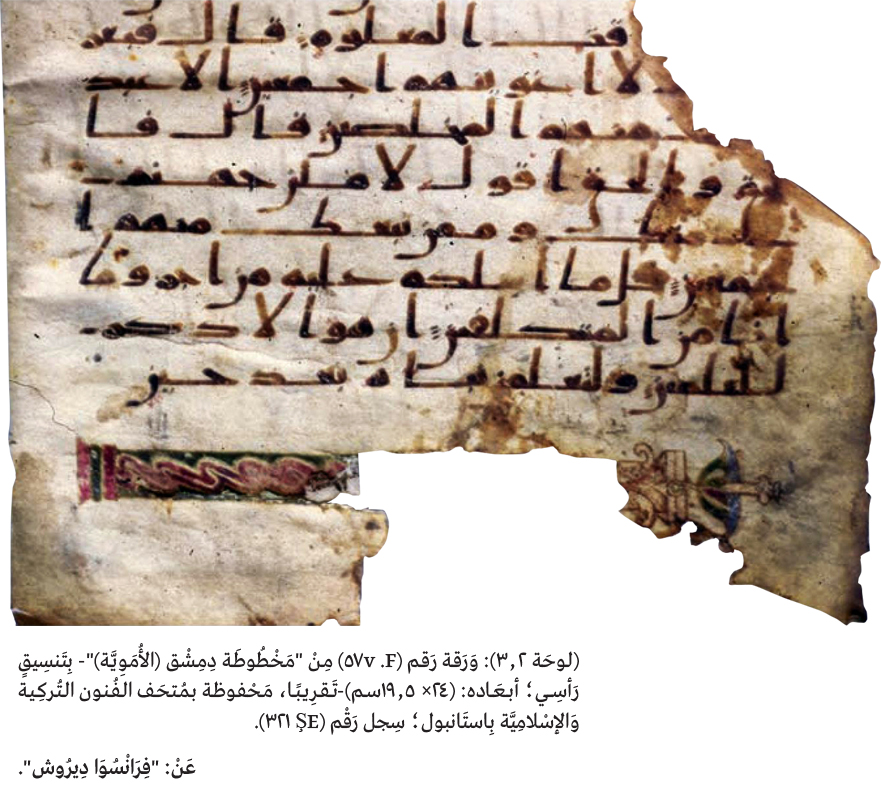 وقت المعلوم قال فبعز
لاغوينهم اجمعين الا عبد
منهم المخلصين قال فا
والحق اقول لاملن جهنم
وممن تبعك منهم ا
جمعين قل ما اسلكم عليه من اجر وما
انا من المتكلفين ان هو الا ذكر
للعلمين ولتعلمن نباه بعد حين
(لوحَة ٣,٢): وَرَقة رَقم (F. ٥٧v) مِنْ "مَخْطُوطَة دِمِشْق (الأُمَوِيَّة)"- بِتَنسِيقٍ
رَأسِي؛ أبعَاده: (٢٤× ١٩,٥سم)-تَقرِيبًا، مَحْفوظة بمُتحَف الفُنون التُركِية
وَالإسْلامِيَّة بِاستَانبول؛ سِجل رَقْم (ŞE ٣٢١).
عَنْ: "فِرَانْسُوَا دِيرُوش".